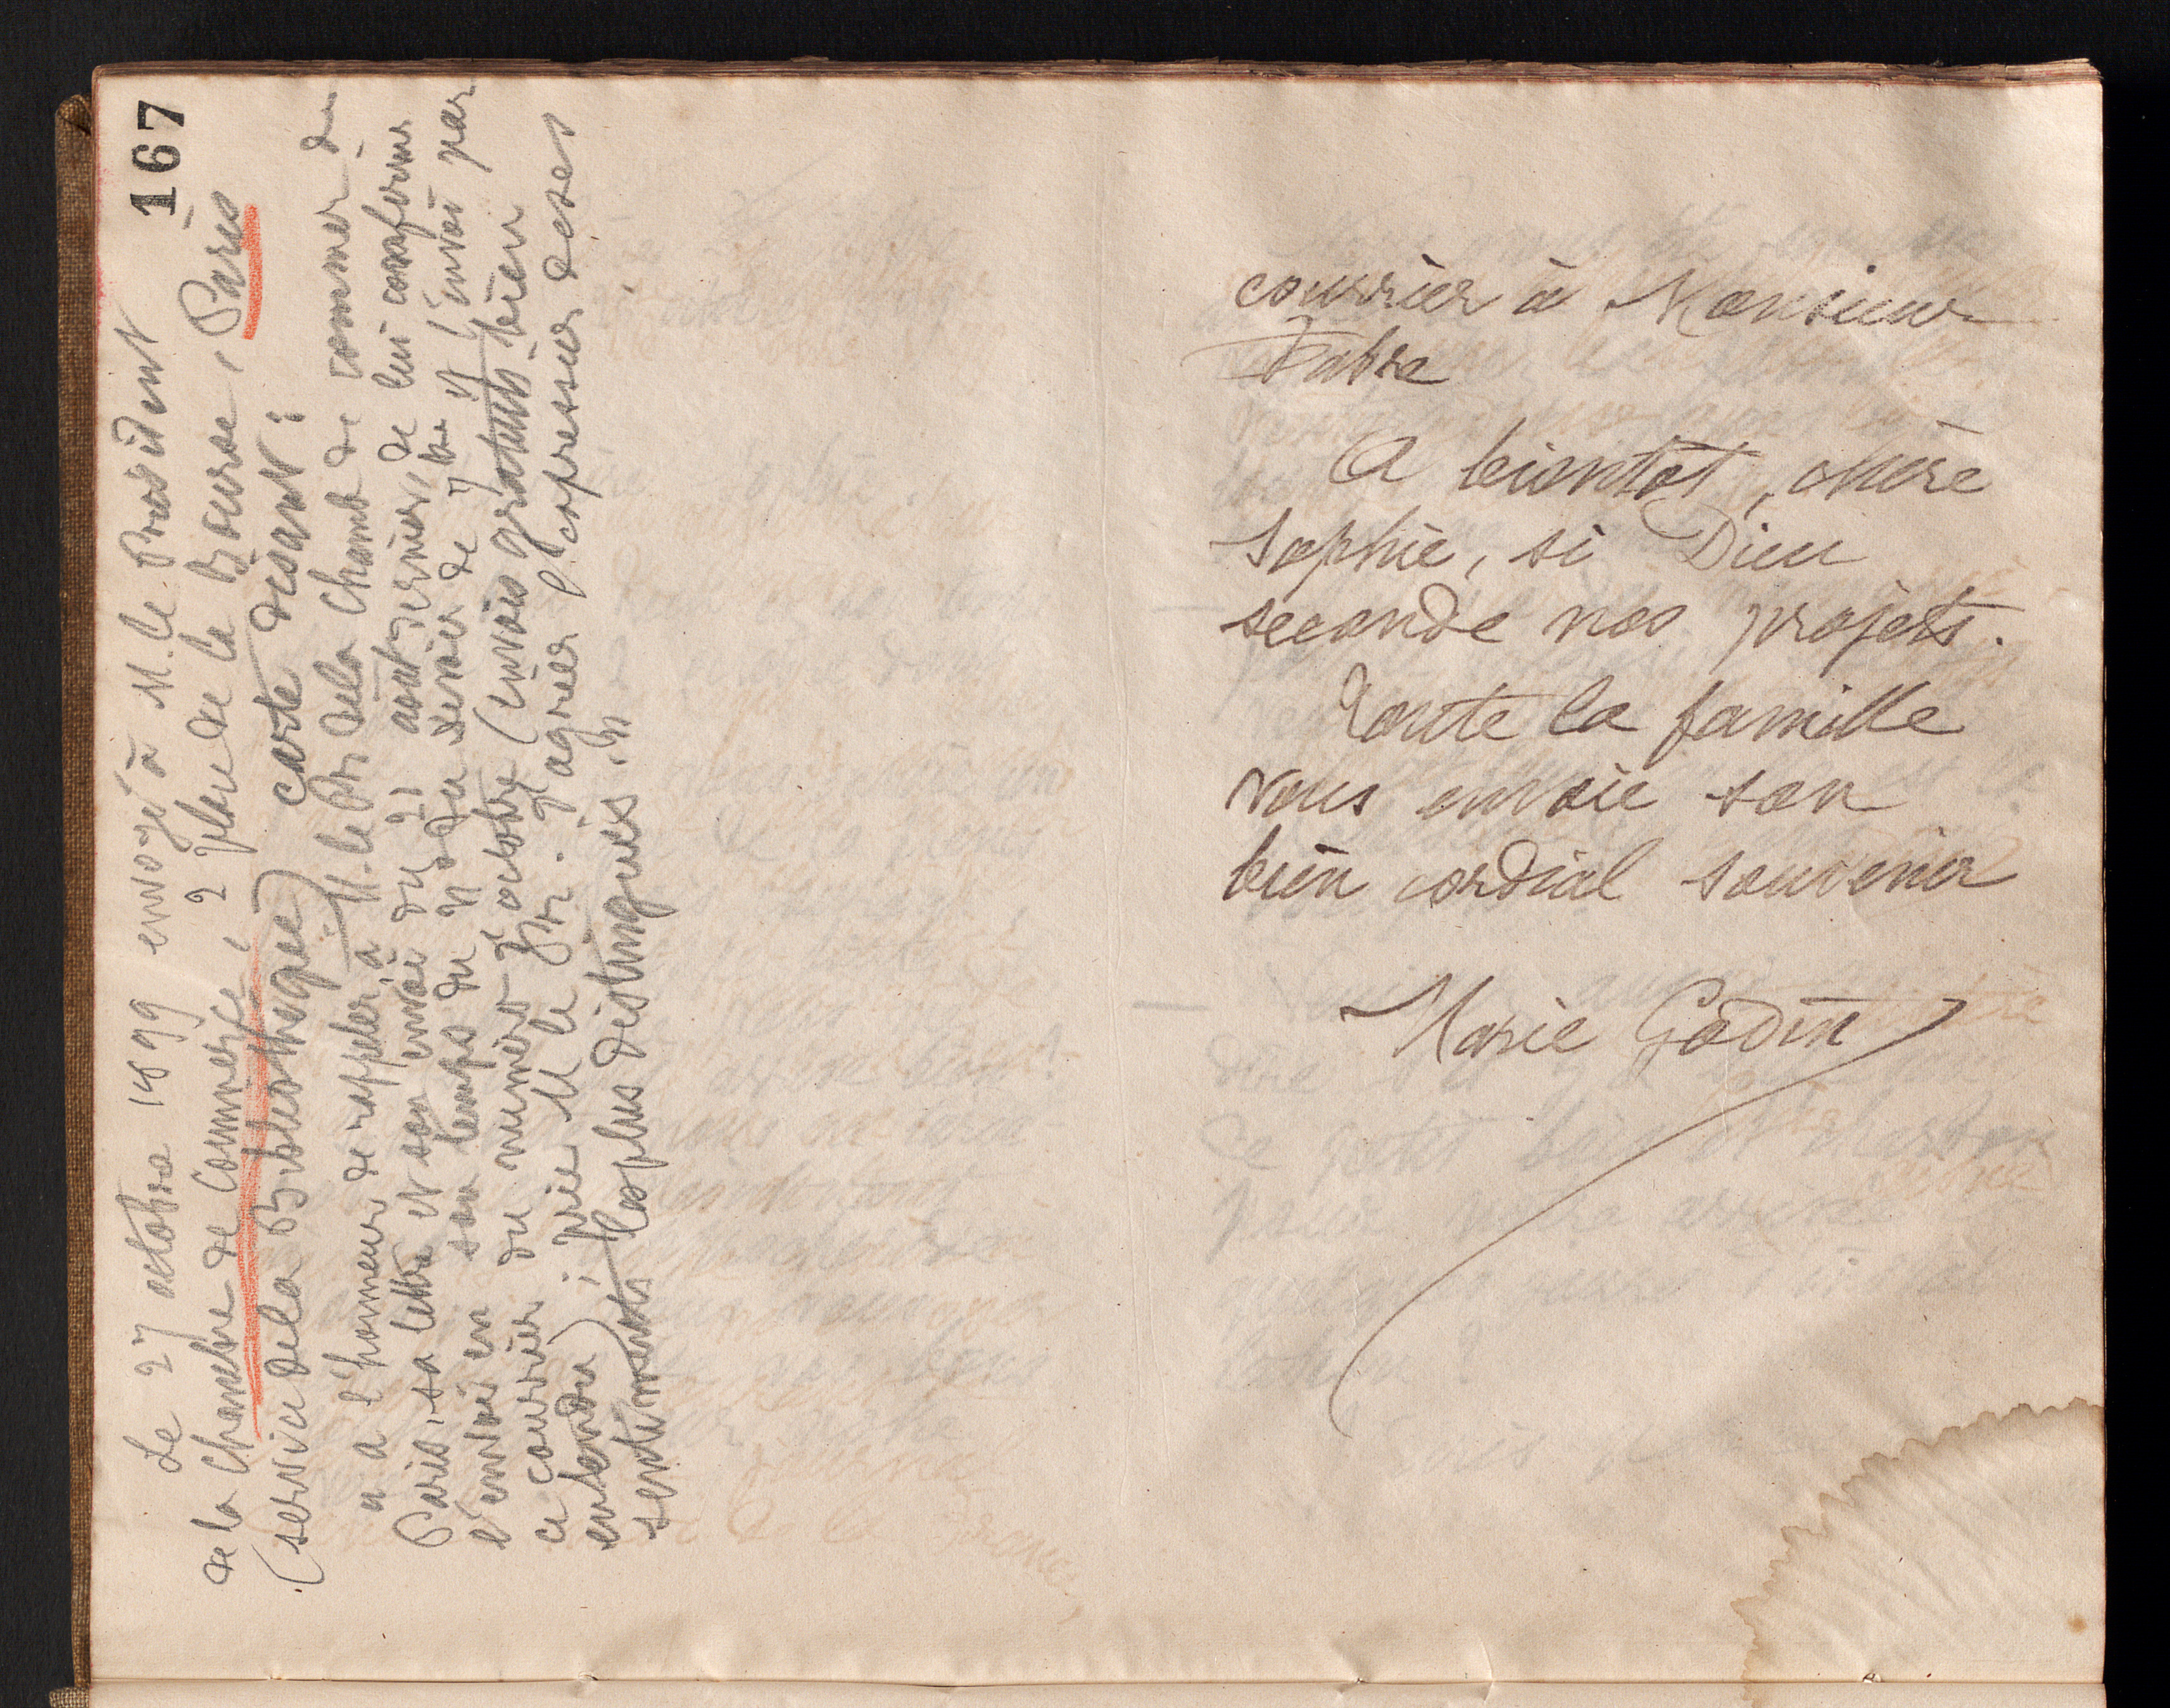 167
Le 27 octobre 1899 envoyé à M. le Président
de la Chambre de Commerce, 2 place de la Bourse, Paris
(service de la Bibliothèque) carte disant :
a l'honneur de rappeler à M. le Pr. de la Chamb de commer de
Paris, sa lettre et son envoi du 21 août dernier, de lui confirmer
l'envoi en son temps du n° du Devoir de 7bre et l'envoi par
ce courrier du numéro d'octobre (envois gratuits bien
entendu) ; prie M le Pr. d'agréer l'expression de ses
sentiments les plus distingués.
courrier à Monsieur
Fabre
A bientôt, chère
Sophie, si Dieu
seconde nos projets.
Toute la famille
vous envoie son
bien cordial souvenir
Marie Godin